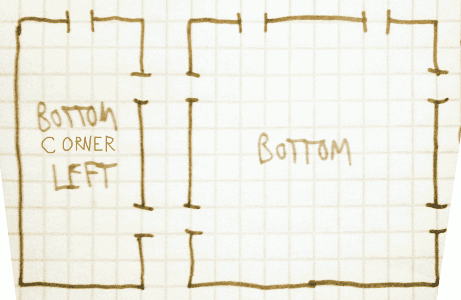 BOTTOM
CORNER
LEFT
BOTTOM